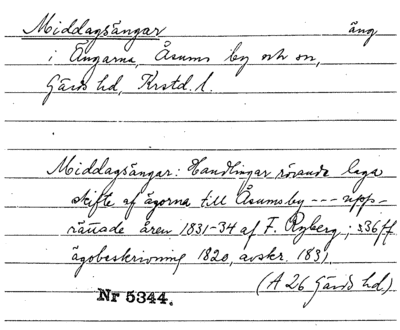 Middagsängar äng
i Ängarna, Åsums by och sn,
Gärds hd, Krstd. l.
Middagsängar: Handlingar rörande laga
skifte af ägorna till Åsumsby --- upp-
rättade åren 1831-34 af F. Ryberg; s 36 ff
ägobeskrivning 1820, avskr. 1831
(A 26 Gärds hd.)
Nr 5344.